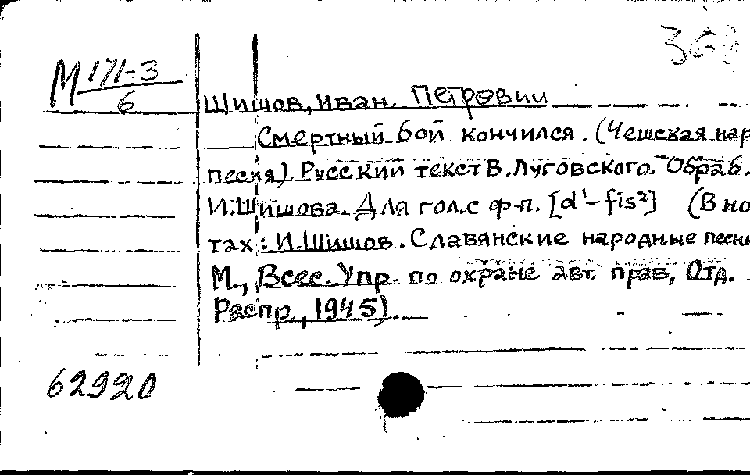 М 171-3
6
Шишов, Иван. Петрович
Смертный бой кончился. (Чешская нар
песня). Русский текст В. Луговского. Обраб.
И. Шишова. Для гол. с ф-п. [d¹-fis²] (В но
тах: И. Шишов. Славянские народные песни
М., Всес. Упр. по охране авт. прав, Отд.
Распр., 1945).
62920